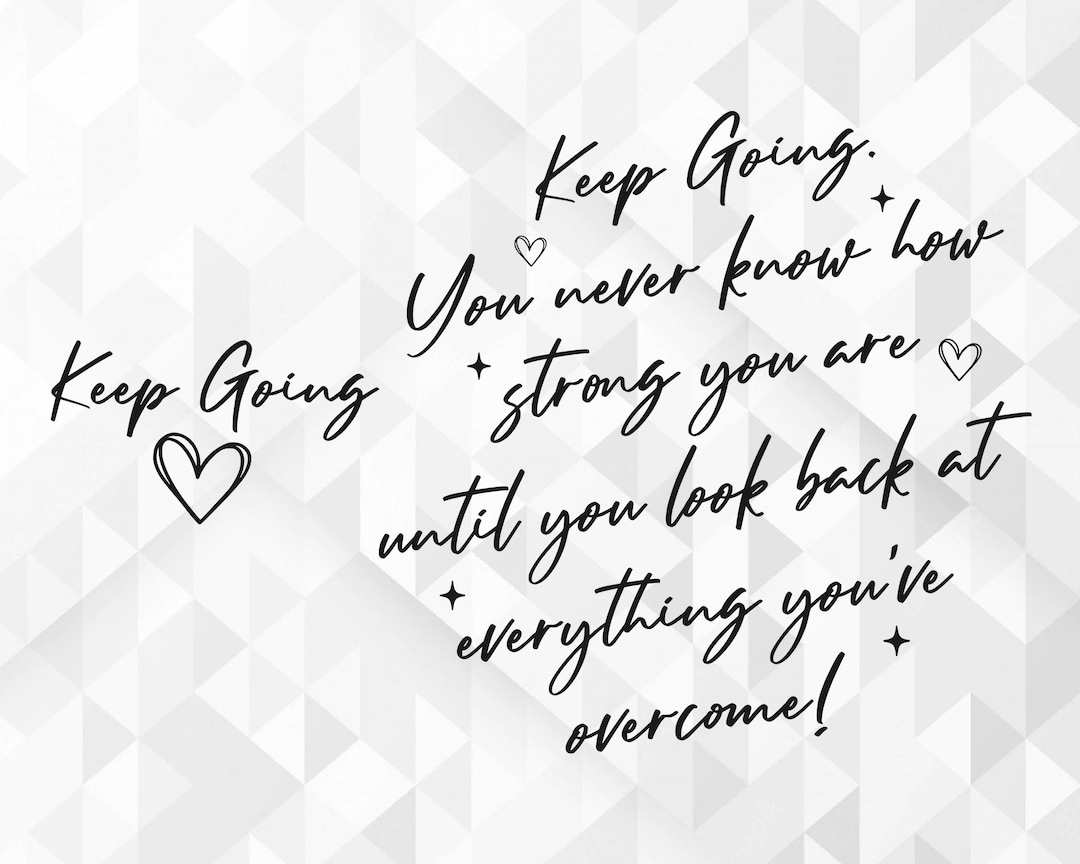 Keep Going
Keep Going.
You never know how
strong you are
until you look back at
everything you've
overcome!